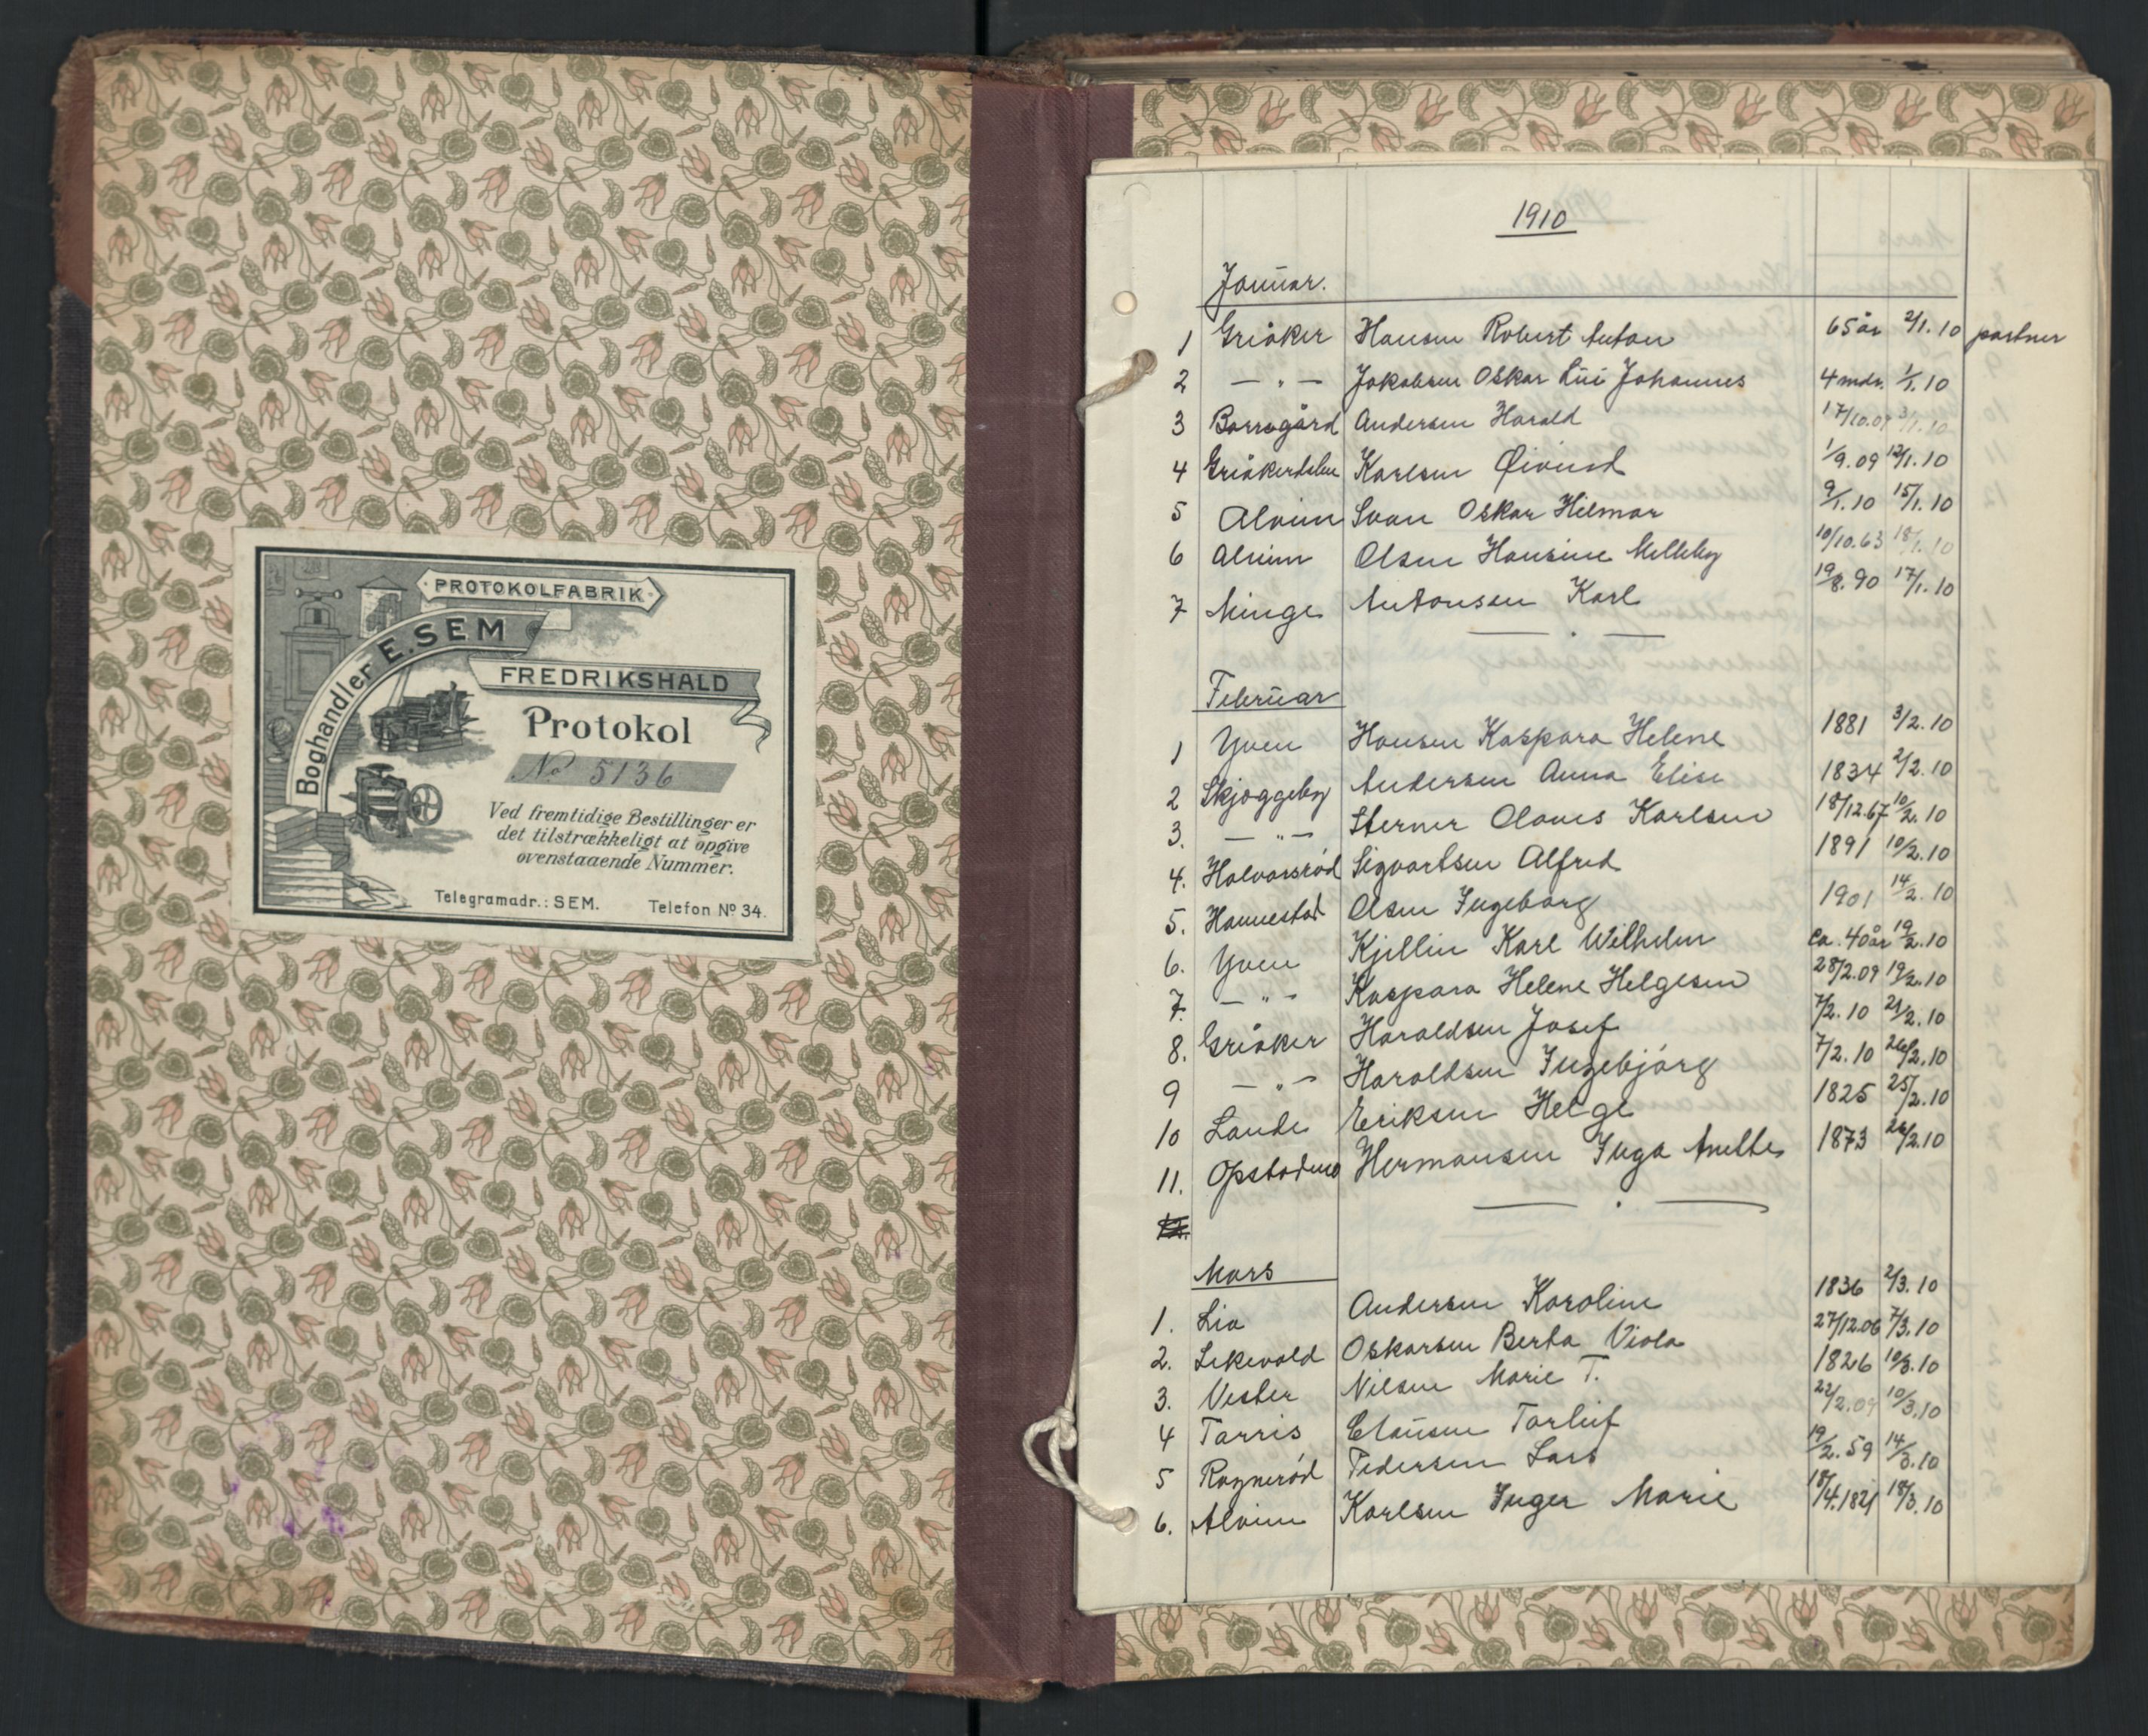 PROTOKOLFABRIK
Boghandler E. SEM
FREDRIKSHALD
Protokol
No 5136
Ved fremtidige Bestillinger er
det tilstrækkeligt at opgive
ovenstaaende Nummer.
Telegramadr.: SEM. Telefon No 34.
1910
Januar.
1 Greåker Hansen Robert Anton 65 år 2/1.10 partner
2 — " — Jakobsen Oskar Lüi Johannes 4 mdr. 1/1.10
3 Borregård Andersen Harald 17/10.09 3/1.10
4 Greåkerdalen Karlsen Øivind 1/9.09 12/1.10
5 Alvim Svan Oskar Hilmar 9/1.10 15/1.10
6 Alvim Olsen Hansine Melleby 10/10.63 18/1.10
7 Minge Antonsen Karl 19/8.90 17/1.10
Februar
1 Yven Hansen Kaspara Helene 1881 3/2.10
2 Skjøggeby Andersen Anna Elise 1834 2/2.10
3. — " — Sterner Olaves Karlsen 18/12.67 10/2.10
4. Halvorsrød Sigvartsen Alfred 1891 10/2.10
5. Hannestad Olsen Ingeborg 1901 14/2.10
6. Yven Kjellin Karl Wilhelm ca. 40 år 19/2.10
7. — " — Kaspara Helene Helgesen 28/2.09 19/2.10
8. Greåker Haraldsen Josef 7/2.10 21/2.10
9 — " — Haraldsen Ingebjørg 7/2.10 26/2.10
10 Lande Eriksen Helge 1825 25/2.10
11. Opstadmo Hermansen Inga Anette 1873 26/2.10
12.
Mars
1. Lia Andersen Karoline 1836 2/3.10
2. Lekevold Oskarsen Berta Viola 27/12.06 7/3.10
3. Vester Nilsen Marie T. 1826 10/3.10
4 Tarris Clausen Torleif 22/2.09 10/3.10
5 Ragnerød Pedersen Lars 19/2.59 14/3.10
6. Alvim Karlsen Inger Marie 18/4.1821 18/3.10